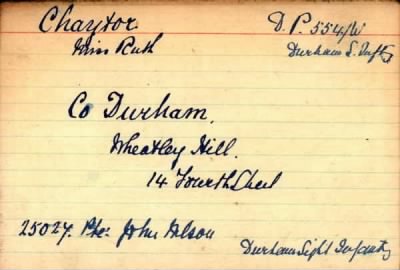 Chaytor D. P. 554/W
Miss Ruth Durham L. Infty
Co Durham.
Wheatley Hill.
14 Fourth Street
25027. Pte. John Wilson
Durham Light Infantry